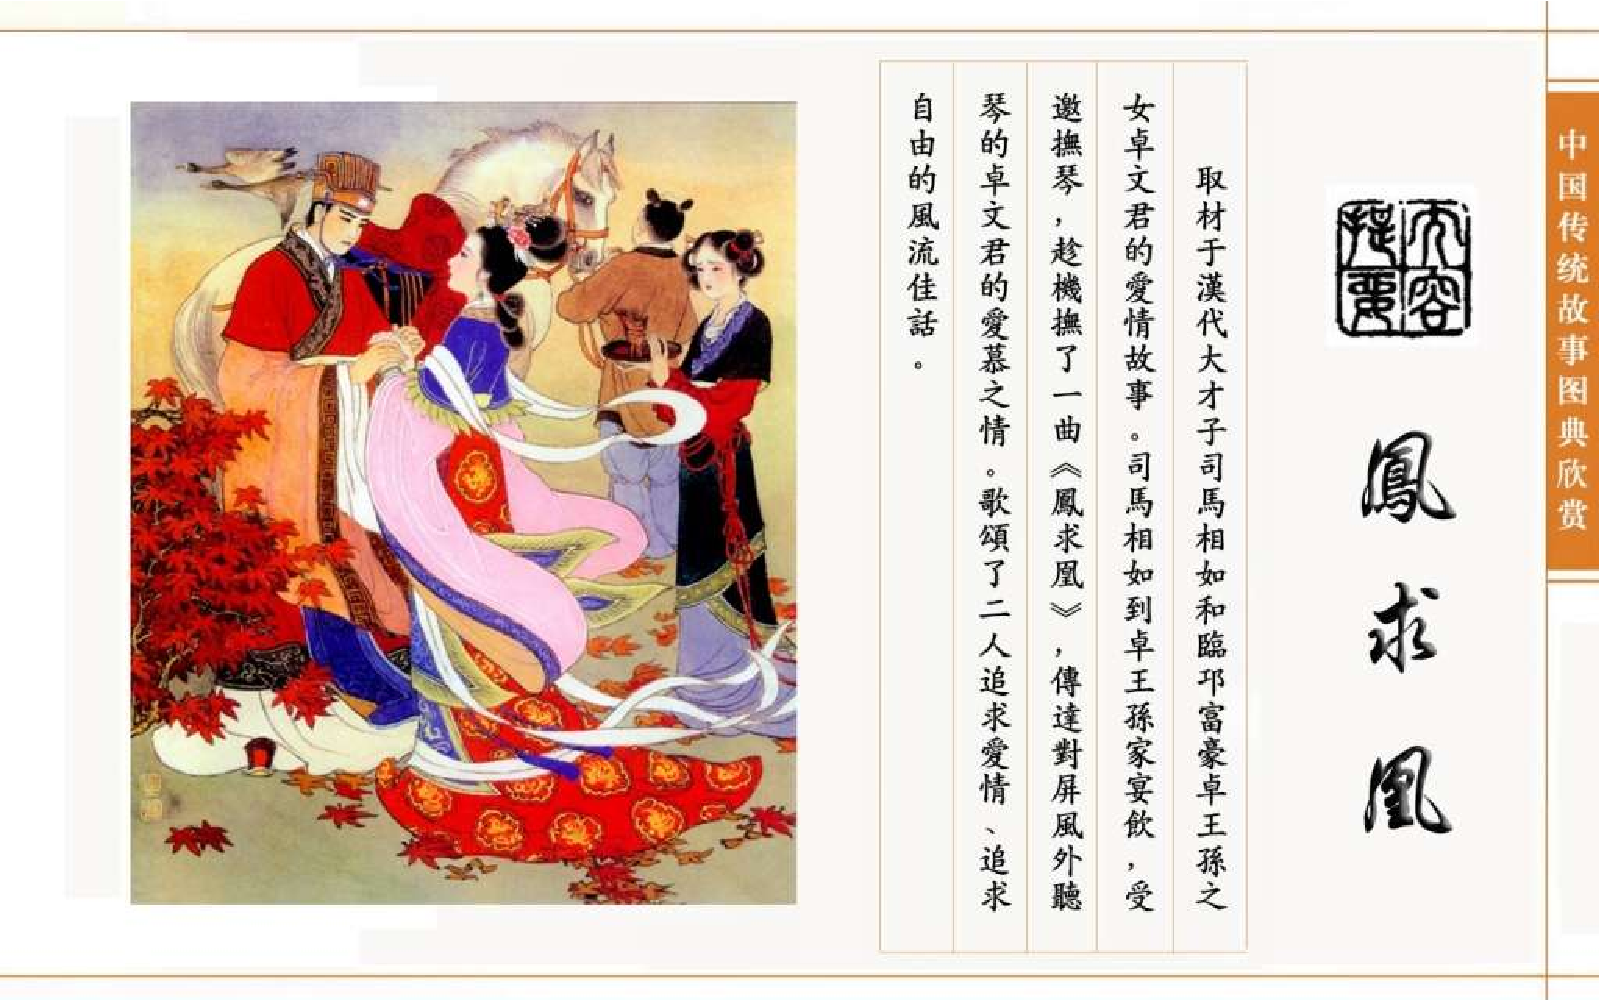 中国传统故事图典欣赏
鳳求凰
取材于漢代大才子司馬相如和臨邛富豪卓王孫之
女卓文君的愛情故事。司馬相如到卓王孫家宴飲，受
邀撫琴，趁機撫了一曲《鳳求凰》，傳達對屏風外聽
琴的卓文君的愛慕之情。歌頌了二人追求愛情、追求
自由的風流佳話。